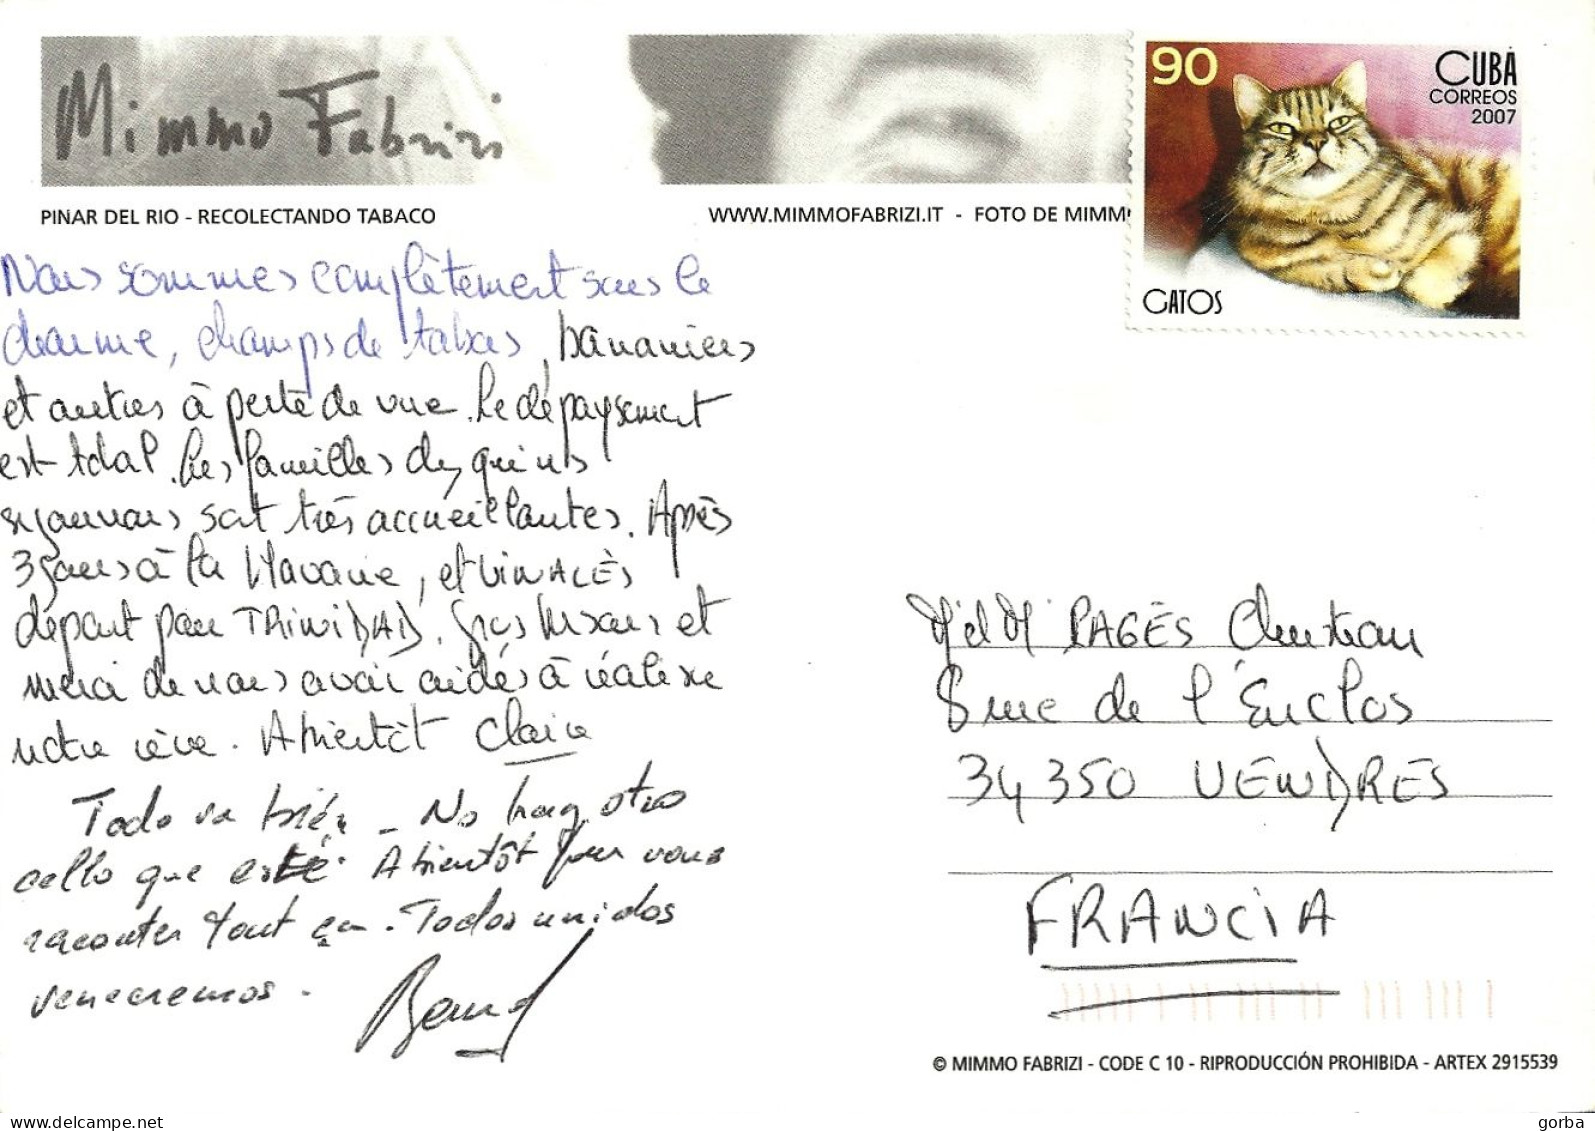 Mimmo Fabrizi
PINAR DEL RIO - RECOLECTANDO TABACO
WWW.MIMMOFABRIZI.IT - FOTO DE MIMM
90
CUBA
CORREOS
2007
GATOS
Nous sommes complètement sous le
charme, champs de tabacs, bananiers
et autres à perte de vue. Le dépaysement
est total. Les familles chez qui ns
séjournons sont très accueillantes. Après
3 jours à la Havane, et VINALÈS
départ pour TRINIDAD. Gros bisous et
merci de nous avoir aidés à réaliser
notre rêve. A bientôt Claire
Todo va bién - No hay otro
cello que esté. A bientôt pour vous
raconter tout ça. Todos unidos
veneceremos.
M et M PAGÈS Christian
rue de l'Enclos
34350 VENDRES
FRANCIA
© MIMMO FABRIZI - CODE C 10 - RIPRODUCCIÓN PROHIBIDA - ARTEX 2915539
gorba